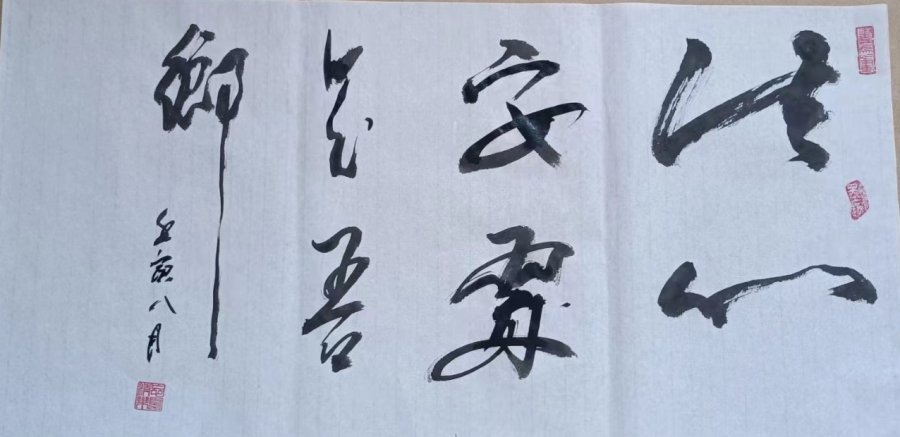 此心
安處
是吾
鄉
壬寅八月